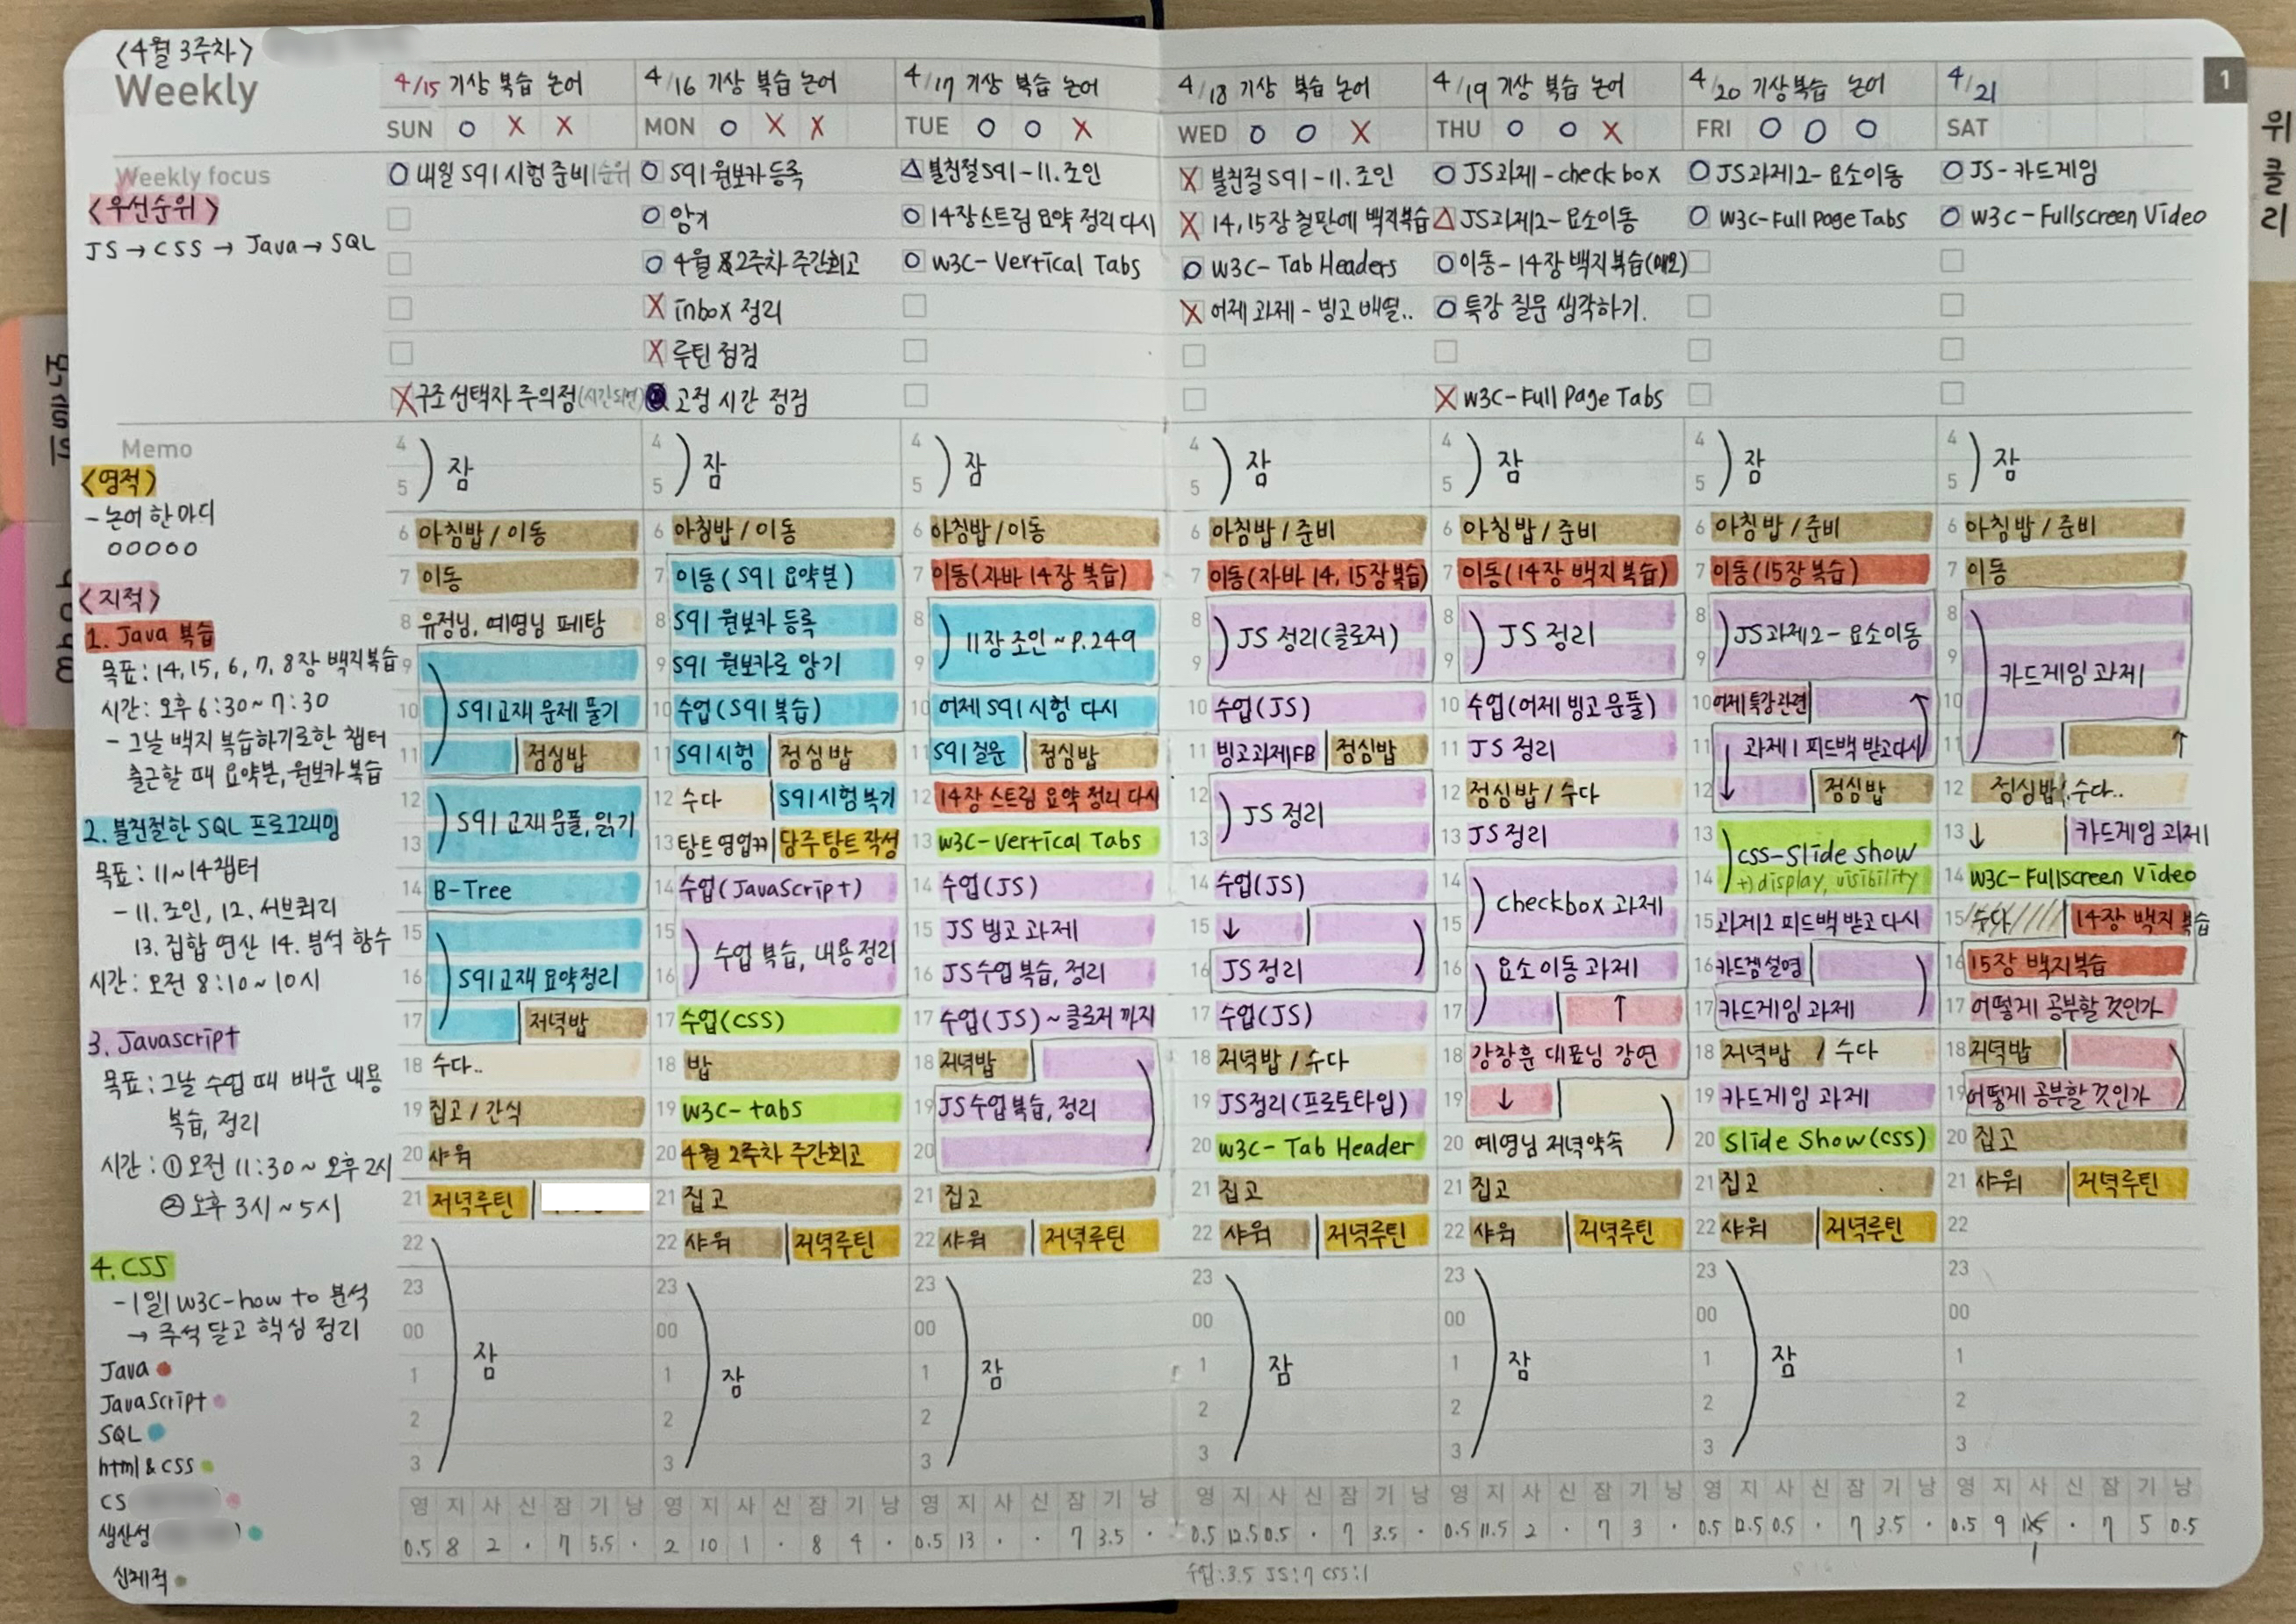 <4월 3주차>
Weekly
1
위클리
4/15 기상 복습 논어
SUN O X X
4/16 기상 복습 논어
MON O X X
4/17 기상 복습 논어
TUE O O X
4/18 기상 복습 논어
WED O O X
4/19 기상 복습 논어
THU O O X
4/20 기상 복습 논어
FRI O O O
4/21
SAT
Weekly focus
<우선순위>
JS → CSS → Java → SQL
O 내일 SQL 시험 준비
X 구조 선택자 주의점 (시간되면)
O SQL 원보카 등록
O 암기
O 4월 2주차 주간회고
X inbox 정리
X 루틴 점검
고정 시간 점검
△ 불친절SQL - 11. 조인
O 14장 스트림 요약 정리 다시
O W3C - Vertical Tabs
X 불친절 SQL - 11. 조인
X 14, 15장 철판에 백지복습
O W3C - Tab Headers
X 어제 과제 - 빙고 배열..
O JS과제 - checkbox
△ JS과제2 - 요소이동
O 이동 - 14장 백지복습
O 특강 질문 생각하기.
X W3C - Full Page Tabs
O JS과제2 - 요소이동
O W3C - Full Page Tabs
O JS - 카드게임
O W3C - Fullscreen Video
Memo
<영적>
- 논어 한마디
O O O O O
<지적>
1. Java 복습
목표: 14, 15, 6, 7, 8장 백지복습
시간: 오후 6:30 ~ 7:30
- 그날 백지 복습하기로한 챕터
출근할 때 요약본, 원보카 복습
2. 불친절한 SQL 프로그래밍
목표: 11~14챕터
- 11. 조인, 12. 서브쿼리
13. 집합 연산 14. 분석 함수
시간: 오전 8:10 ~ 10시
3. Javascript
목표: 그날 수업 때 배운 내용
복습, 정리
시간: ① 오전 11:30 ~ 오후 2시
② 오후 3시 ~ 5시
4. CSS
- 1일1 W3C-how to 분석
→ 주석 달고 핵심 정리
Java
JavaScript
SQL
html & CSS
CS
생산성
신체적
4
5 잠
6 아침밥 / 이동
7 이동
8 유정님, 예영님 페탐
9
10 SQL교재 문제 풀기
11 점심밥
12
13 SQL 교재 문풀, 읽기
14 B-Tree
15
16 SQL교재 요약정리
17 저녁밥
18 수다..
19 집고 / 간식
20 샤워
21 저녁루틴
22
23
00
1 잠
2
3
4
5 잠
6 아침밥 / 이동
7 이동 (SQL 요약본)
8 SQL 원보카 등록
9 SQL 원보카로 암기
10 수업 (SQL 복습)
11 SQL시험 | 점심밥
12 수다 | SQL시험 복기
13 탕트 영업ㄲ | 당주 탕트 작성
14 수업 (JavaScript)
15
16 수업 복습, 내용정리
17 수업 (CSS)
18 밥
19 W3C - tabs
20 4월 2주차 주간회고
21 집고
22 샤워 | 저녁루틴
23
00
1 잠
2
3
4
5 잠
6 아침밥 / 이동
7 이동 (자바 14장 복습)
8
9 11장 조인 ~ P.249
10 어제 SQL 시험 다시
11 SQL 질문 | 점심밥
12 14장 스트림 요약 정리 다시
13 W3C - Vertical Tabs
14 수업 (JS)
15 JS 빙고 과제
16 JS수업 복습, 정리
17 수업 (JS) ~ 클로저 까지
18 저녁밥
19 JS수업복습, 정리
20
21 집고
22 샤워 | 저녁루틴
23
00
1 잠
2
3
4
5 잠
6 아침밥 / 준비
7 이동 (자바 14, 15장복습)
8
9 JS 정리 (클로저)
10 수업 (JS)
11 빙고과제FB | 점심밥
12
13 JS 정리
14 수업 (JS)
15 ↓
16 JS 정리
17 수업 (JS)
18 저녁밥 / 수다
19 JS정리 (프로토타입)
20 W3C - Tab Header
21 집고
22 샤워 | 저녁루틴
23
00
1 잠
2
3
4
5 잠
6 아침밥 / 준비
7 이동 (14장 백지복습)
8
9 JS 정리
10 수업 (어제 빙고 문풀)
11 JS 정리
12 점심밥 / 수다
13 JS 정리
14
15 checkbox 과제
16 요소이동 과제
17 ↑
18 강창훈 대표님 강연
19 ↓
20 예영님 저녁약속
21 집고
22 샤워 | 저녁루틴
23
00
1 잠
2
3
4
5 잠
6 아침밥 / 준비
7 이동 (15장 복습)
8
9 JS과제2 - 요소이동
10 어제 특강 관련 ↑
11 과제1 피드백 받고 다시
12 ↓ 점심밥
13 CSS-Slide Show
14 +) display, visibility
15 과제2 피드백 받고 다시
16 카드겜설명
17 카드게임 과제
18 저녁밥 / 수다
19 카드게임 과제
20 Slide Show (CSS)
21 집고
22 샤워 | 저녁루틴
23
00
1 잠
2
3
4
5 잠
6 아침밥 / 준비
7 이동
8
9 카드게임 과제
10
11 ↑
12 점심밥, 수다..
13 ↓ 카드게임 과제
14 W3C-Fullscreen Video
15 수다 | 14장 백지 복습
16 15장 백지복습
17 어떻게 공부할 것인가
18 저녁밥
19 어떻게 공부할 것인가
20 집고
21 샤워 | 저녁루틴
22
23
00
1
2
3
영 지 사 신 잠 기 낭
0.5 8 2 · 7 5.5 ·
영 지 사 신 잠 기 낭
2 10 1 · 8 4 ·
영 지 사 신 잠 기 낭
0.5 13 · · 7 3.5 ·
영 지 사 신 잠 기 낭
0.5 12.5 0.5 · 7 3.5 ·
영 지 사 신 잠 기 낭
0.5 11.5 2 · 7 3 ·
영 지 사 신 잠 기 낭
0.5 12.5 0.5 · 7 3.5 ·
영 지 사 신 잠 기 낭
0.5 9 1 · 7 5 0.5
수업:3.5 JS:7 CSS:1